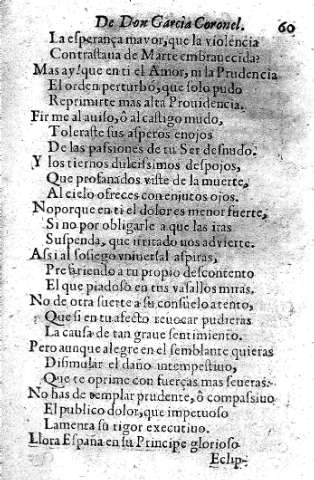 De Don Garcia Coronel. 60
La esperança mayor, que la violencia
Contrastaua de Marte embrauecida?
Mas ay! que en ti el Amor, ni la Prudencia
El orden perturbò, que solo pudo
Reprimirte mas alta Prouidencia.
Firme al auiso, ò al castigo mudo,
Toleraste sus asperos enojos
De las passiones de tu Ser desnudo.
Y los tiernos dulcissimos despojos,
Que profanados viste de la muerte,
Al cielo ofreces con enjutos ojos.
No porque en ti el dolor es menor fuerte,
Si no por obligarle a que las iras
Suspenda, que irritado nos advierte.
Assi al sosiego vniuersal aspiras,
Prefiriendo a tu propio descontento
El que piadoso en tus vasallos miras.
No de otra suerte a su consuelo atento,
Que si en tu afecto reuocar pudieras
La causa de tan graue sentimiento.
Pero aunque alegre en el semblante quieras
Disimular el daño intempestiuo,
Que te oprime con fuerças mas seueras.
No has de templar prudente, ò compassiuo
El publico dolor, que impetuoso
Lamenta su rigor executiuo.
Llora España en su Principe glorioso
Eclip-